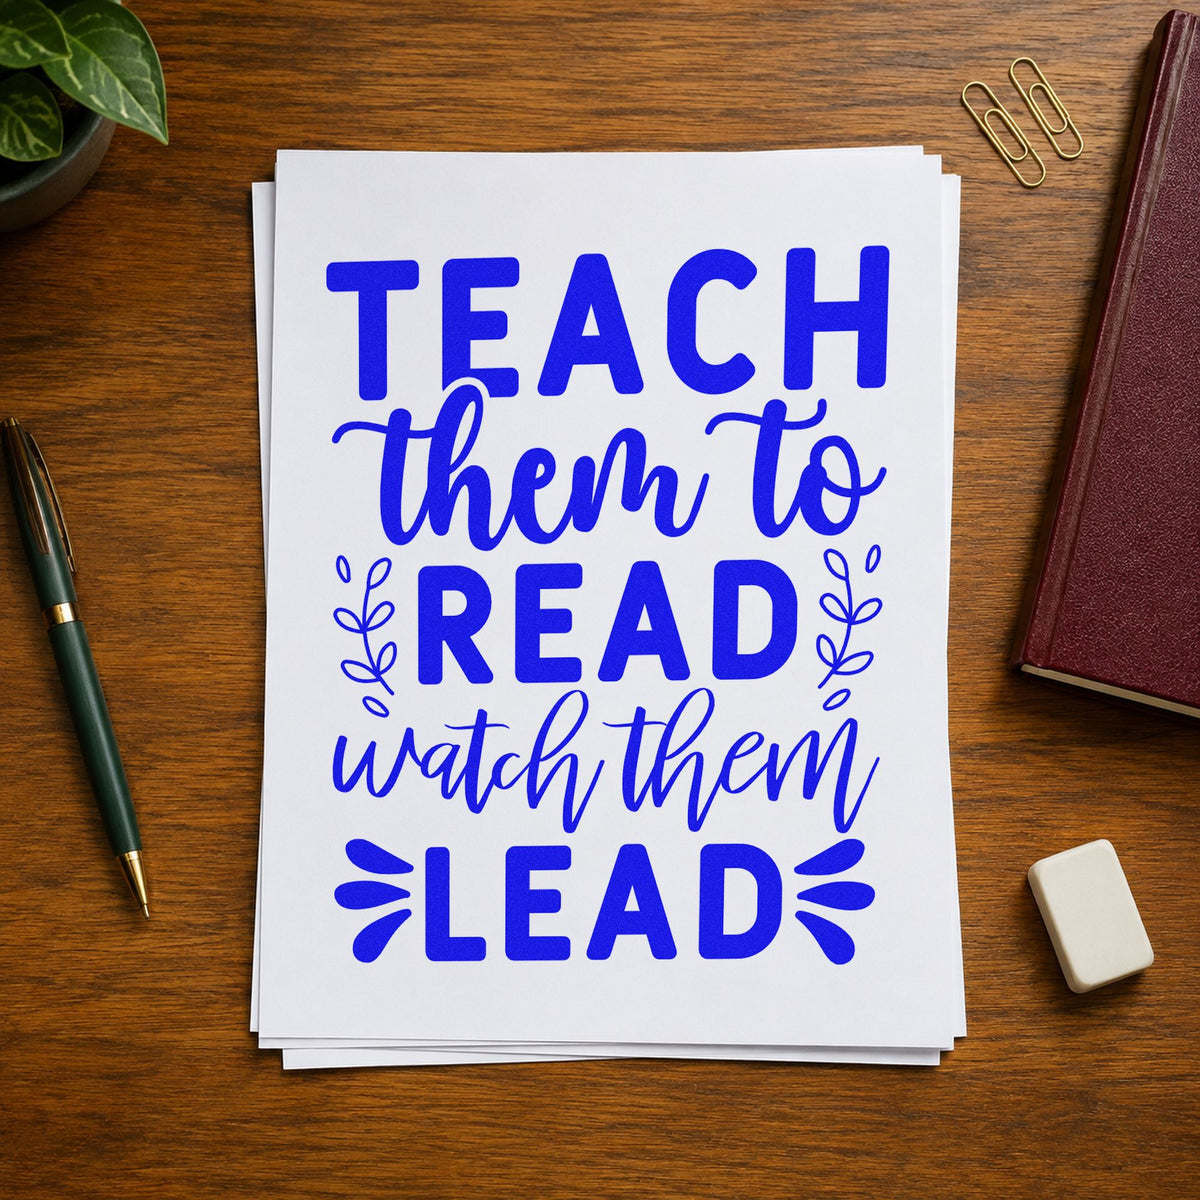 TEACH
them to
READ
watch them
LEAD